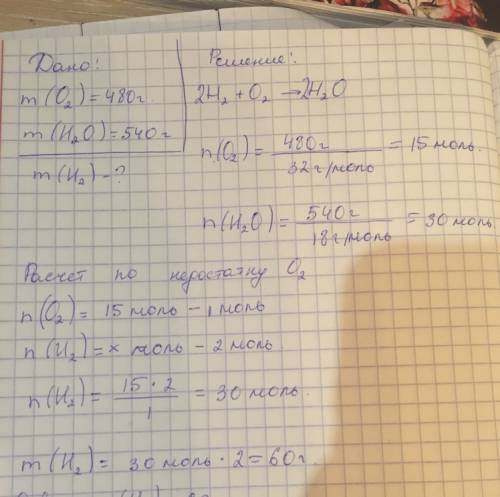 Дано:
m(O₂)=480г
m(H₂O)=540г
m(H₂)-?
Решение:
2H₂+O₂→2H₂O
n(O₂)= 480г / 32г/моль = 15 моль.
n(H₂O)= 540г / 18г/моль = 30 моль
Расчет по недостатку O₂
n(O₂)= 15 моль - 1 моль
n(H₂)=x моль - 2 моль
n(H₂)= 15·2 / 1 = 30 моль.
m(H₂)= 30 моль·2=60г.